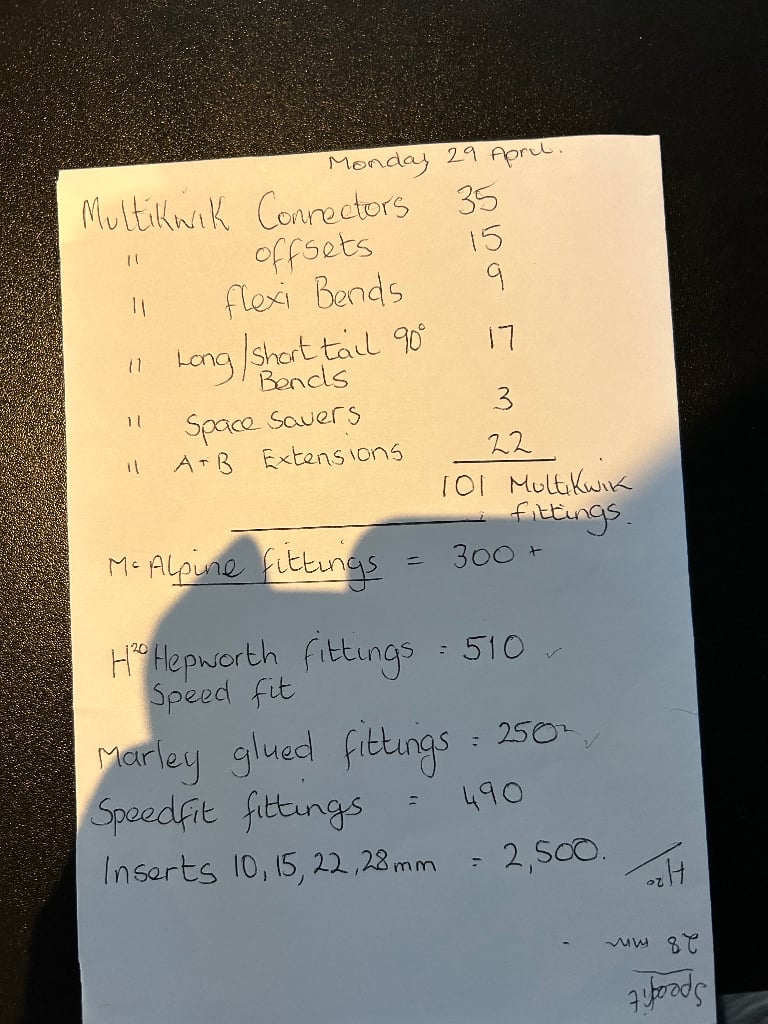 Monday 29 April.
Multikwik Connectors 35
" offsets 15
" flexi Bends 9
" Long/Short tail 90° 17
Bends
" Space Savers 3
" A+B Extensions 22
101 Multikwik
fittings.
Mc Alpine fittings = 300+
H²⁰ Hepworth fittings = 510 ✓
Speed fit
Marley glued fittings = 250 ✓
Speedfit fittings = 490
Inserts 10, 15, 22, 28mm = 2,500.
H₂₀
28 mm -
Speedfit